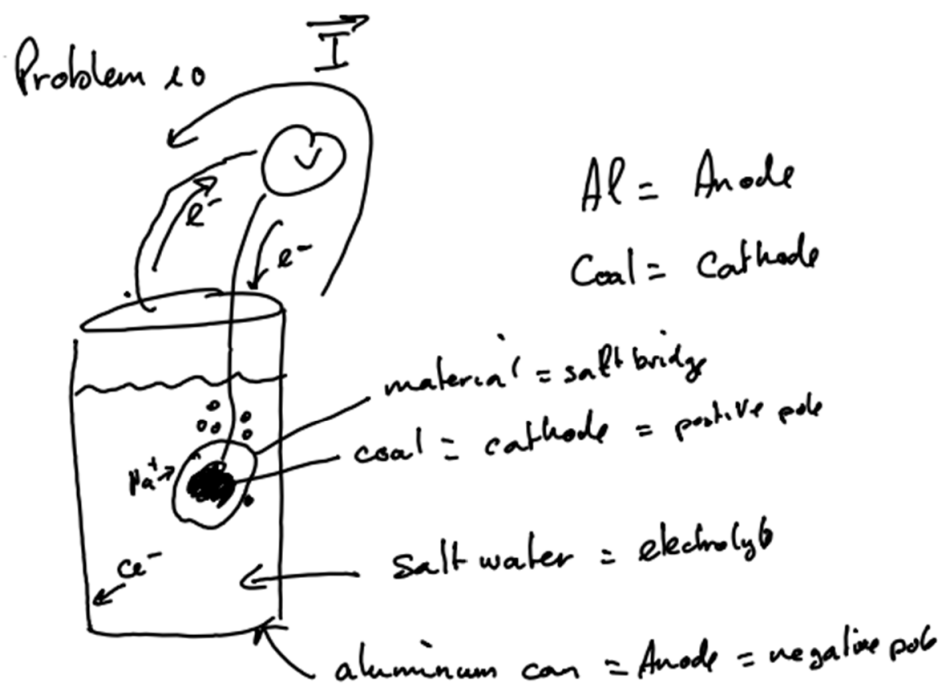 Problem 10
I
V
e-
e-
Al = Anode
Coal = Cathode
material = salt bridge
coal = cathode = positive pole
Na+
salt water = electrolyt
Cl-
aluminum can = Anode = negative pole